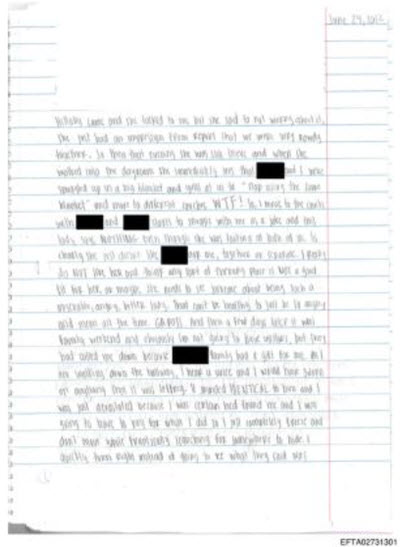 June 29, 2002
and she talked to me but she said to not worry about it,
She just had an impression from report that we were very rowdy
together. So then that evening she was like and when she
walked into the dayroom she immediately saw that and I were
snuggled up in a big blanket and yells at us to "stop using the same
blanket" and move to different couches. WTF! So I move to the couch
with and starts to snuggle with me as a joke and this
lady says NOTHING even though she was looking at both of us. So
clearly she just didn't like and me, together or separate. I really
do not like her and think any part of nursing here is not a good
fit for her, or maybe, she needs to see someone about being such a
miserable, angry, bitter lady. That can't be healthy to just be so angry
and mean all the time. And then a few days later it was
family weekend and obviously I'm not going to have visitors, but they
had called me down because family had a gift for me. As I
am walking down the hallway, I hear a voice and I would have sworn
on anything that it was It sounded IDENTICAL to him and I
was just because I was certain he'd found me and I was
going to have to pay for what I did so I just completely froze and
don't move while frantically searching for somewhere to hide. I
quickly turn right instead of going to see what they said was
EFTA02731301